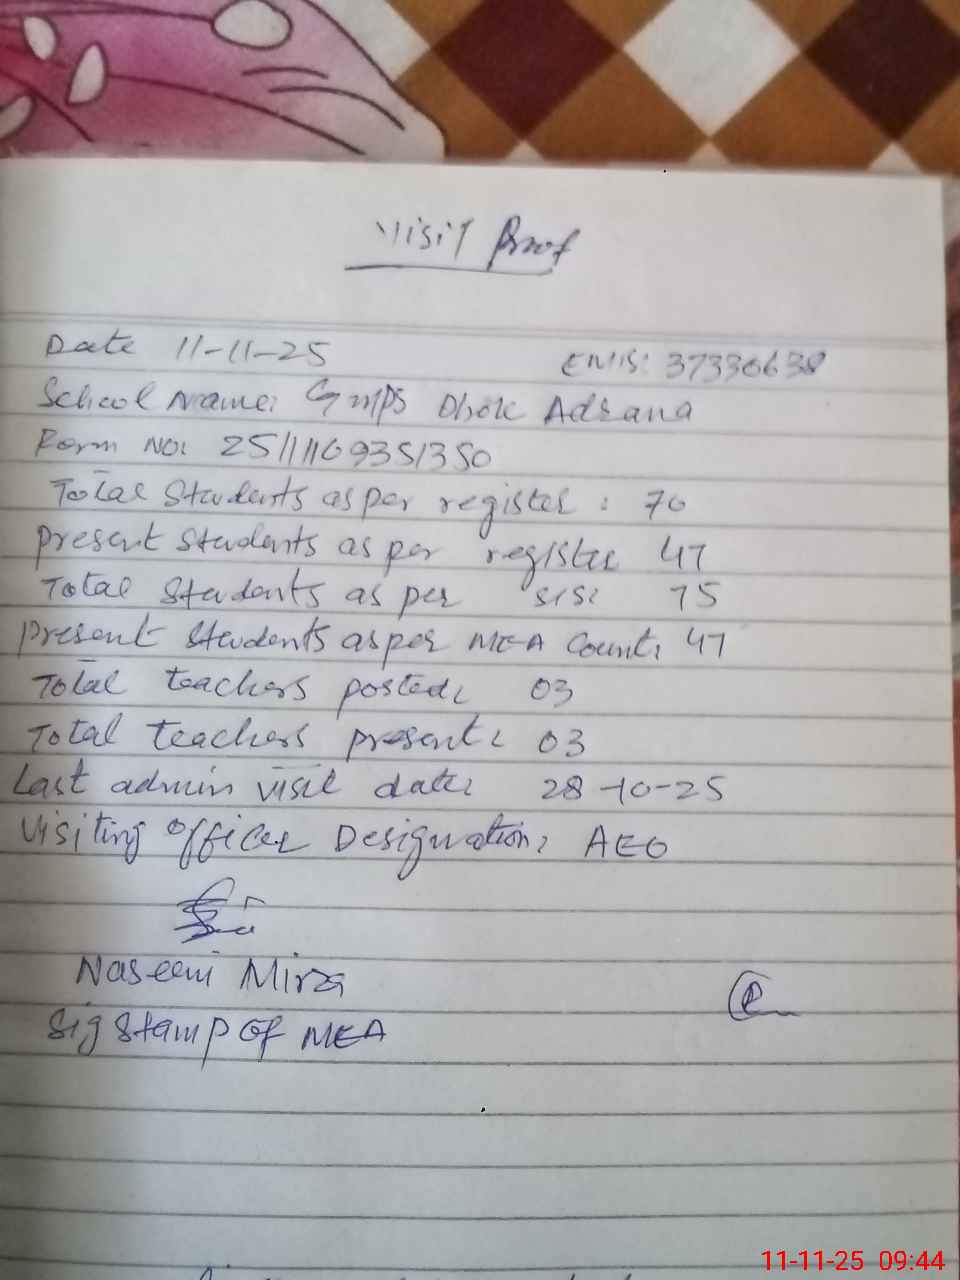 Visit Proof
Date 11-11-25 EMIS: 37330638
School Name: GMPS Dhok Adrana
Form No: 25111109351350
Total Students as per register: 70
Present Students as per register 47
Total Students as per SIS: 75
Present Students as per MEA Count: 47
Total teachers posted: 03
Total teachers present: 03
Last admin visit date: 28-10-25
Visiting Officer Designation: AEO
Naseem Mirza
Sig Stamp Of MEA
11-11-25 09:44